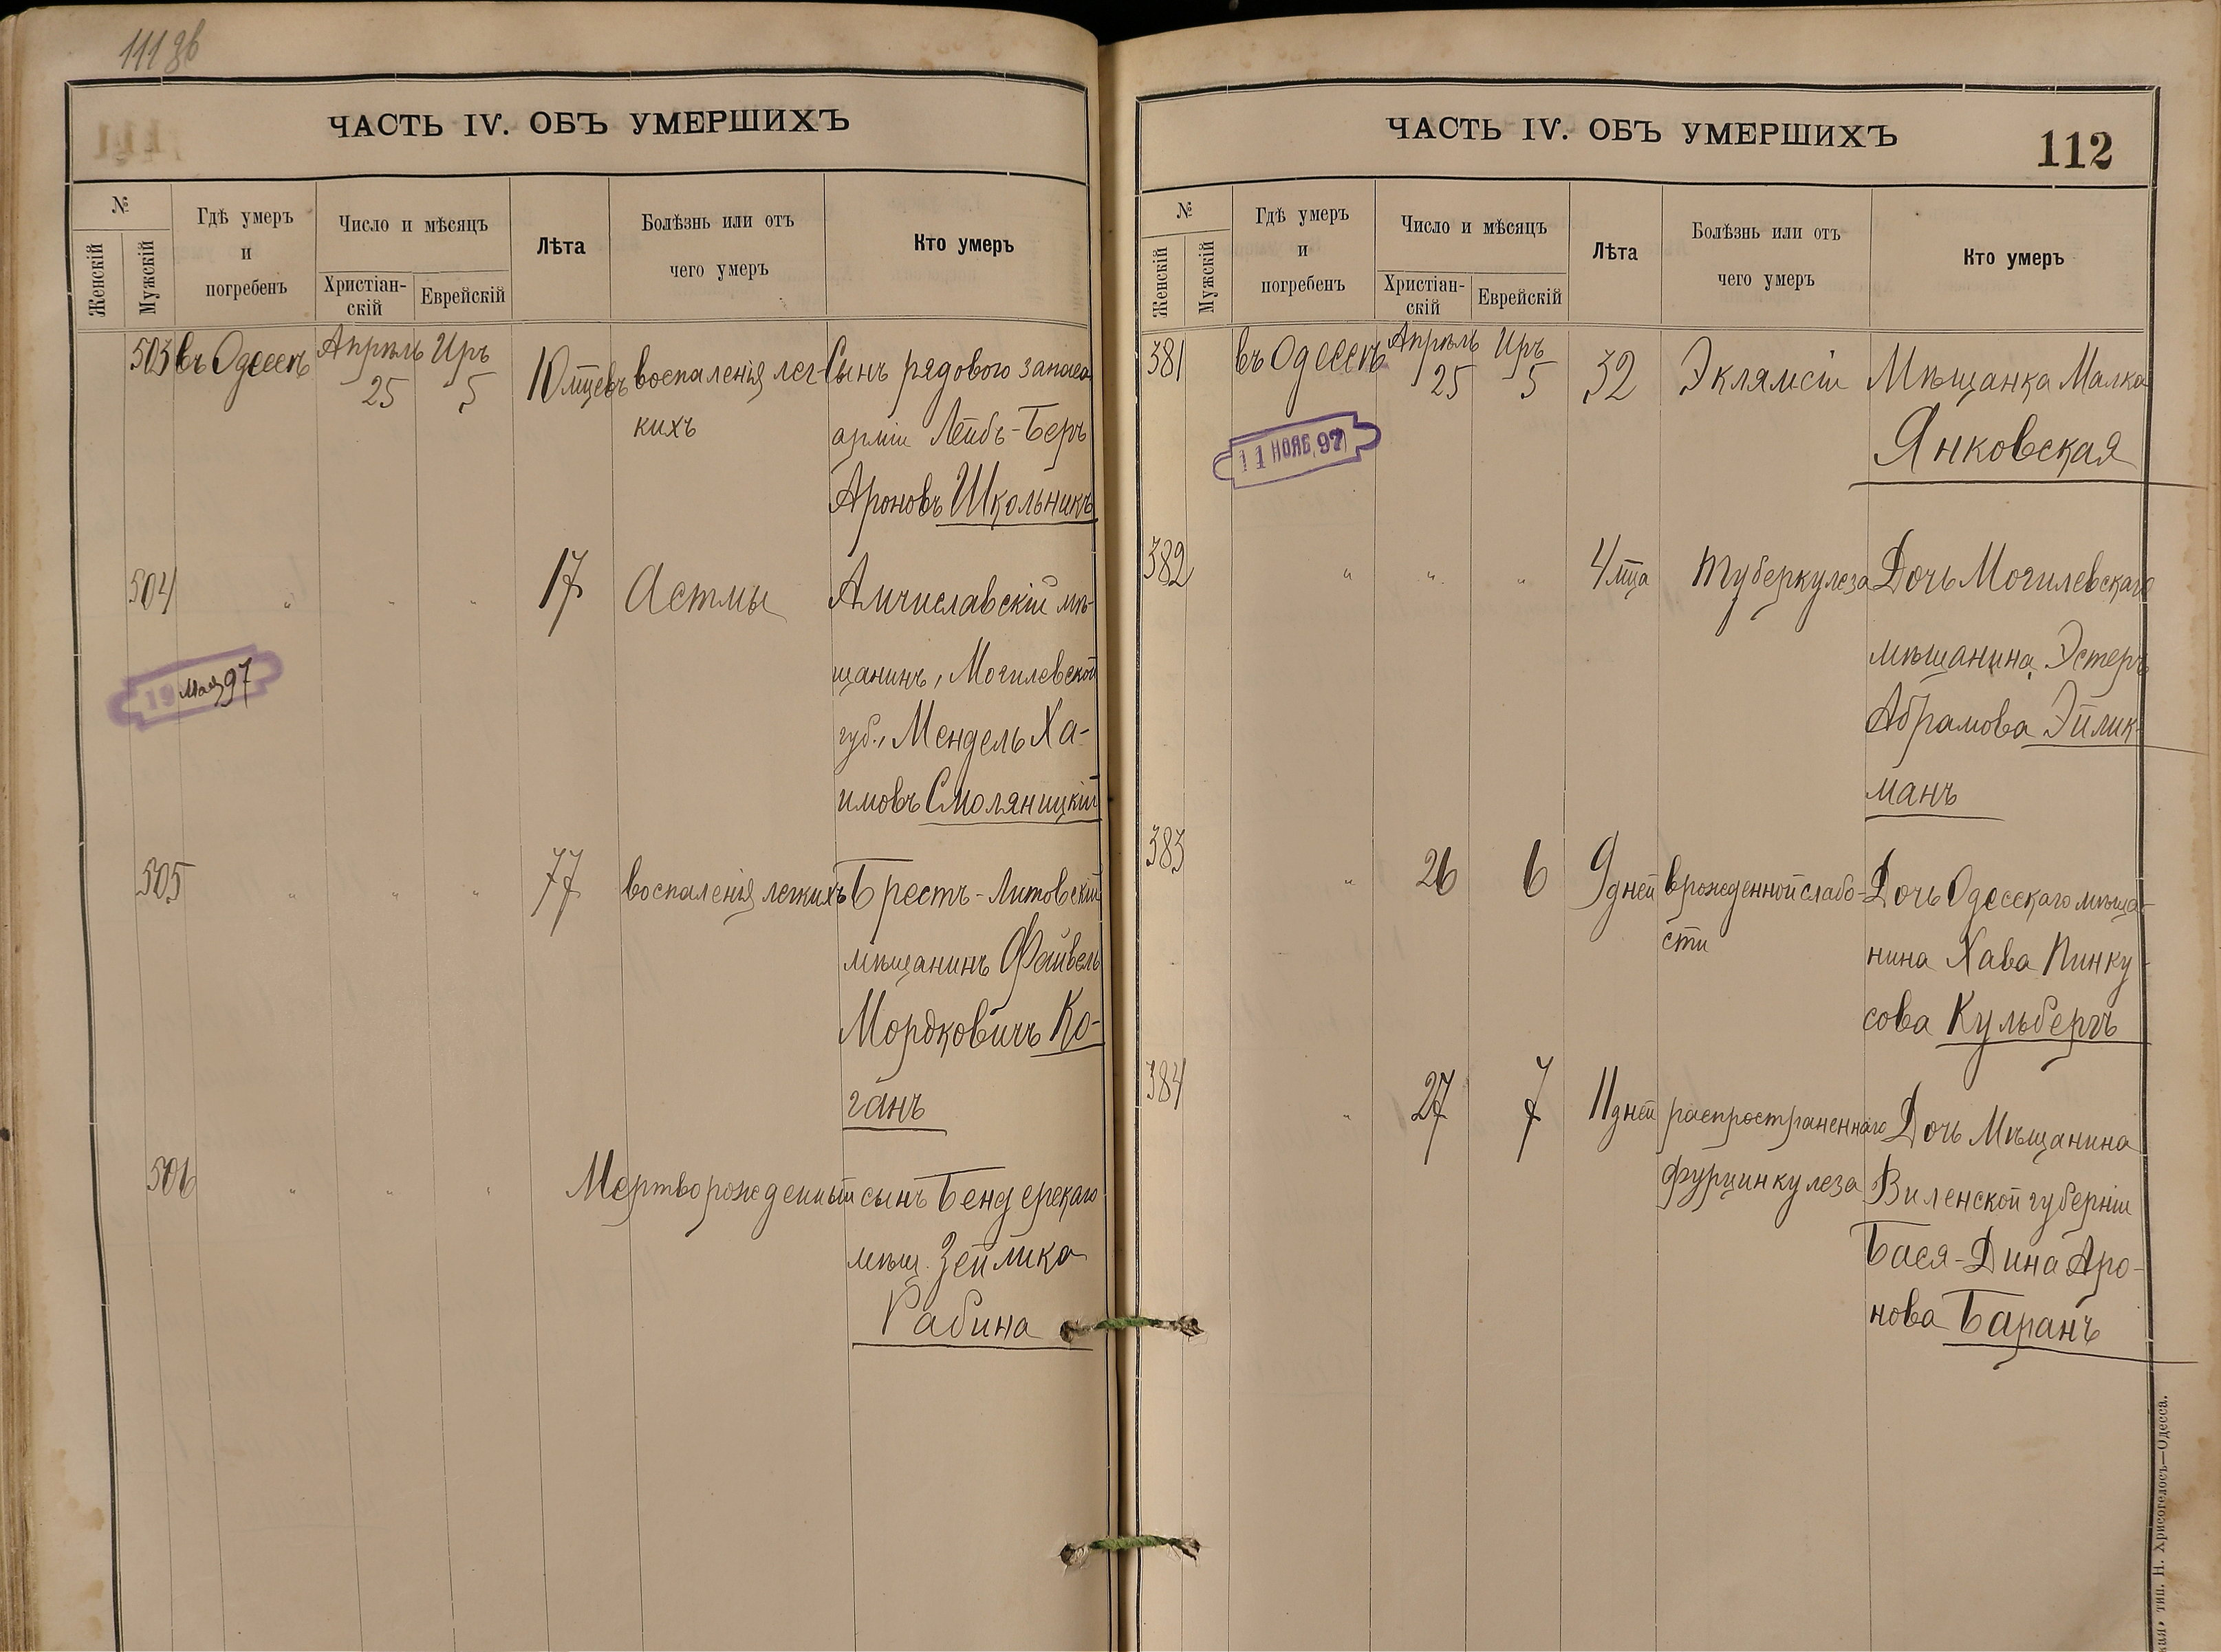 111 об
ЧАСТЬ IV. ОБЪ УМЕРШИХЪ
№
Женскій
Мужскій
Гдѣ умеръ
и
погребенъ
Число и мѣсяцъ
Христіан-
скій
Еврейскій
Лѣта
Болѣзнь или отъ
чего умеръ
Кто умеръ
503 въ Одессѣ Апрѣль 25 Иръ 5 10 мцевъ воспаленія лег- Сынъ рядового запаса
кихъ арміи Лейбъ-Беръ
Ароновъ Школьникъ
504 " " " 17 Астмы Амчиславскій мѣ-
щанинъ, Могилевской
19 Мая 97
губ., Мендель Ха-
имовъ Смоляницкій
505 " " " 77 воспаленія легкихъ Брестъ-Литовскій
мѣщанинъ Файвель
Мордковичъ Ко-
ганъ
506 " " " Мертворожденный сынъ Бендерскаго
мѣщ. Зейлика
Рабина
ЧАСТЬ IV. ОБЪ УМЕРШИХЪ
112
№
Женскій
Мужскій
Гдѣ умеръ
и
погребенъ
Число и мѣсяцъ
Христіан-
скій
Еврейскій
Лѣта
Болѣзнь или отъ
чего умеръ
Кто умеръ
381 въ Одессѣ Апрѣль 25 Иръ 5 32 Эклямсіи Мѣщанка Малка
11 НОЯБ. 97
Янковская
382 " " " 4 мца туберкулеза Дочь Могилевскаго
мѣщанина Эстеръ
Абрамова Эйлик-
манъ
383 " 26 6 9 дней врожденной слабо- Дочь Одесскаго мѣща-
сти нина Хава Пинку-
сова Кульбергъ
384 " 27 7 11 дней распространеннаго Дочь Мѣщанина
фурцинкулеза Виленской губерніи
Бася-Дина Аро-
нова Баранъ
тип. Н. Хрисогелосъ—Одесса.